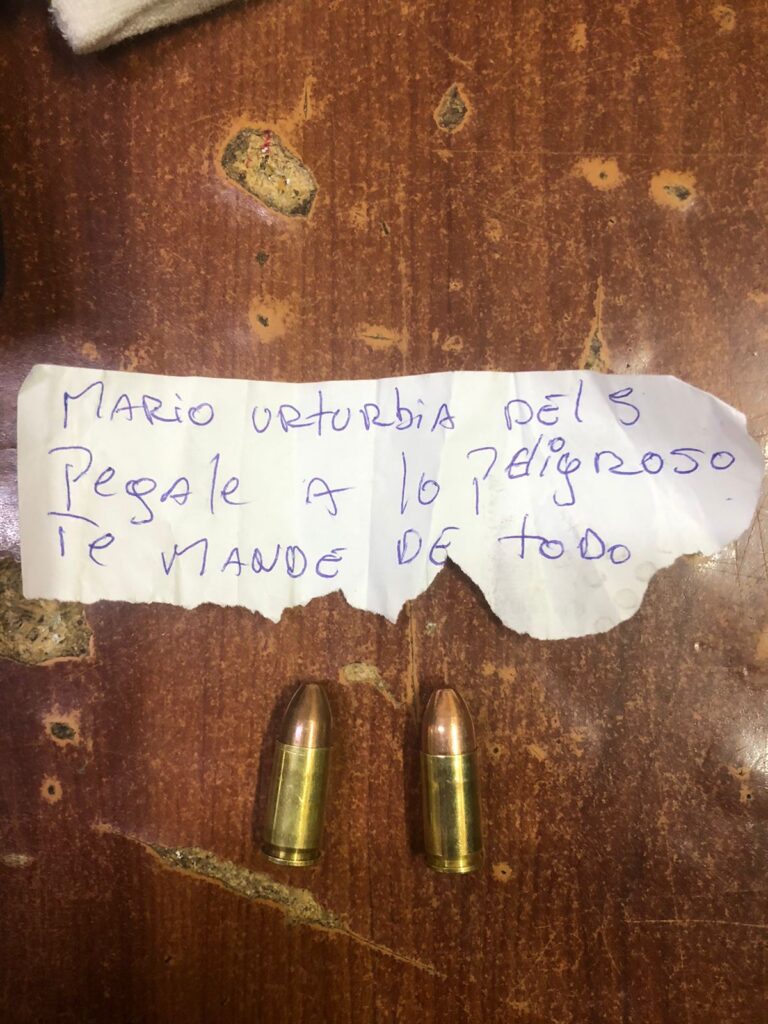 MARio URTURbiA DEl 5
Pegale A lo PEligROSO
Te MANDE DE toDo